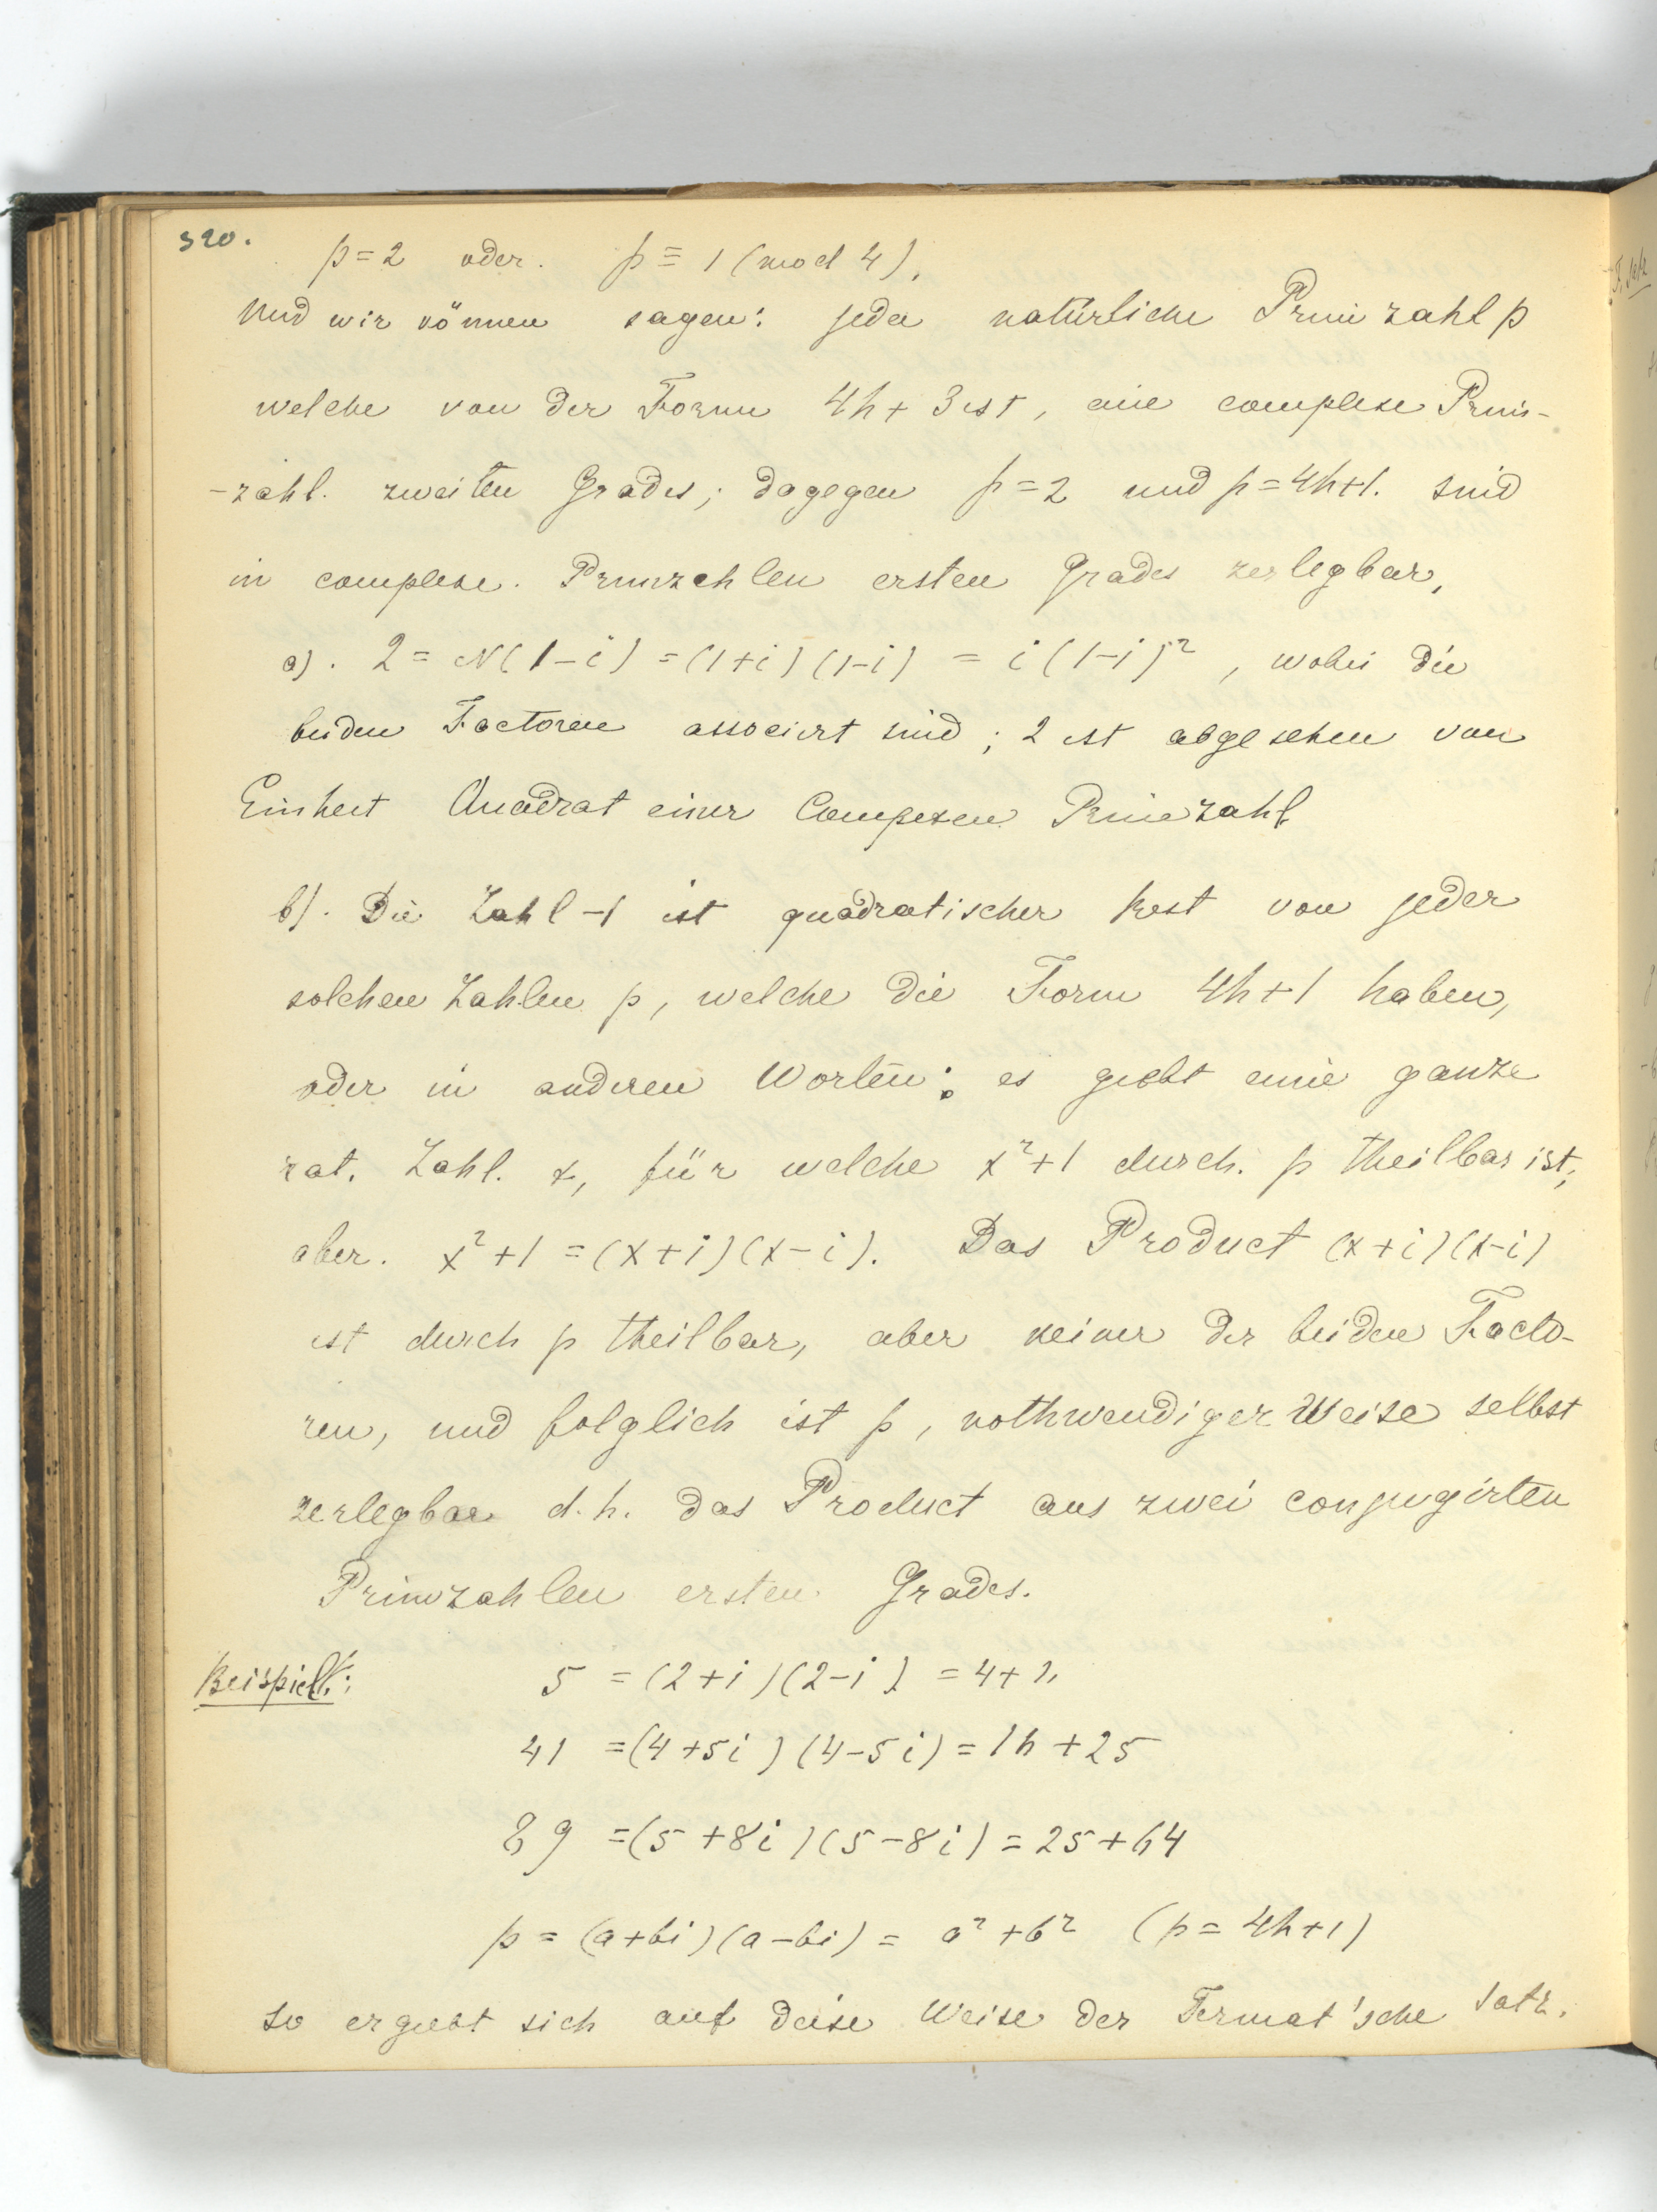 320.
p = 2 oder. p ≡ 1 (mod 4),
und wir können sagen: jede natürliche Primzahl p
welche von der Form 4h + 3 ist, eine complexe Prim-
-zahl. zweiten Grades; dagegen p = 2 und p = 4h+1. sind
in complexe. Primzahlen ersten Grades zerlegbar,
a). 2 = N(1-i) = (1+i)(1-i) = i(1-i)², wobei die
beiden Factoren associirt sind; 2 ist abgesehen von
Einheit Quadrat einer Compexen Primzahl
b). Die Zahl -1 ist quadratischer Rest von jeder
solchen Zahlen p, welche die Form 4h+1 haben,
oder in anderen Worten: es giebt eine ganze
rat. Zahl. x, für welche x²+1 durch. p theilbar ist;
aber. x²+1 = (x+i)(x-i). Das Product (x+i)(x-i)
ist durch p theilbar, aber keiner der beiden Facto-
ren, und folglich ist p, nothwendiger Weise selbst
zerlegbar d.h. das Product aus zwei conjugirten
Primzahlen ersten Grades.
Beispiel: 5 = (2+i)(2-i) = 4+1,
41 = (4+5i)(4-5i) = 16+25
89 = (5+8i)(5-8i) = 25+64
p = (a+bi)(a-bi) = a²+b² (p = 4h+1)
so ergiebt sich auf diese Weise der Fermat'sche Satz.